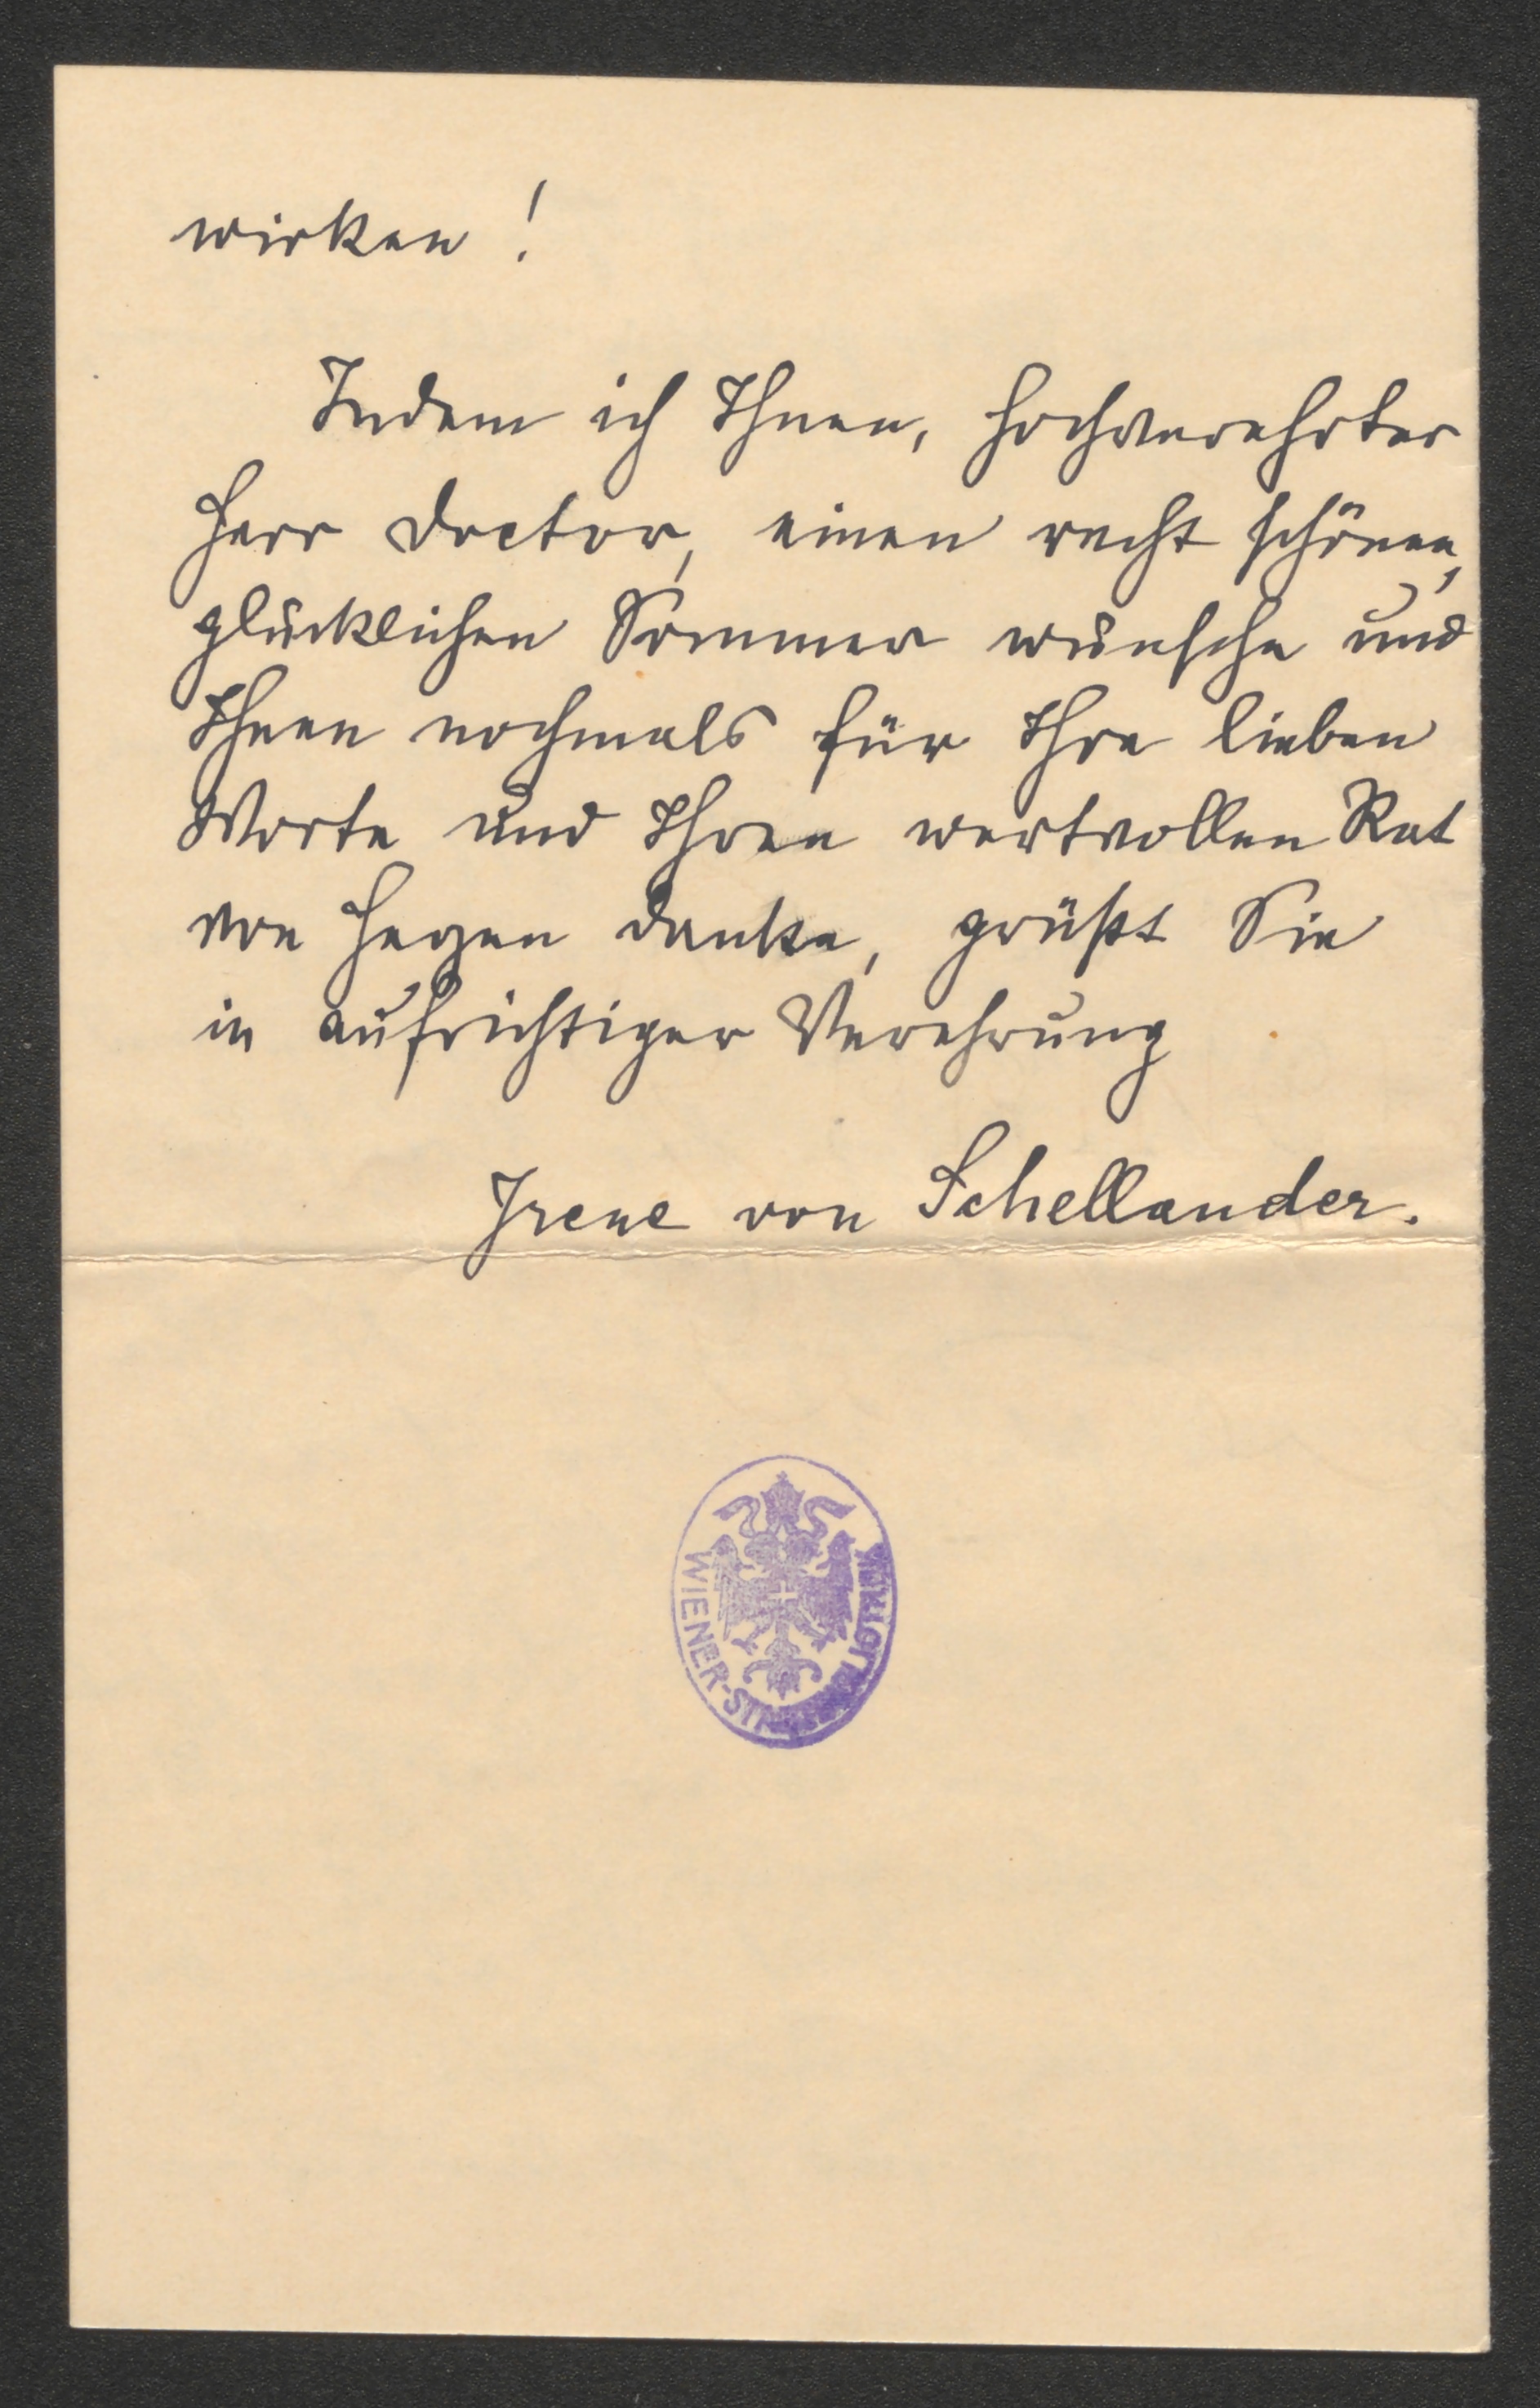 wirken!
Indem ich Ihnen, hochverehrter
Herr Doctor, einen recht schönen,
glücklichen Sommer wünsche und
Ihnen nochmals für Ihre lieben
Worte und Ihren wertvollen Rat
von Herzen danke, grüßt Sie
in aufrichtiger Verehrung
Irene von Schellander.
WIENER-